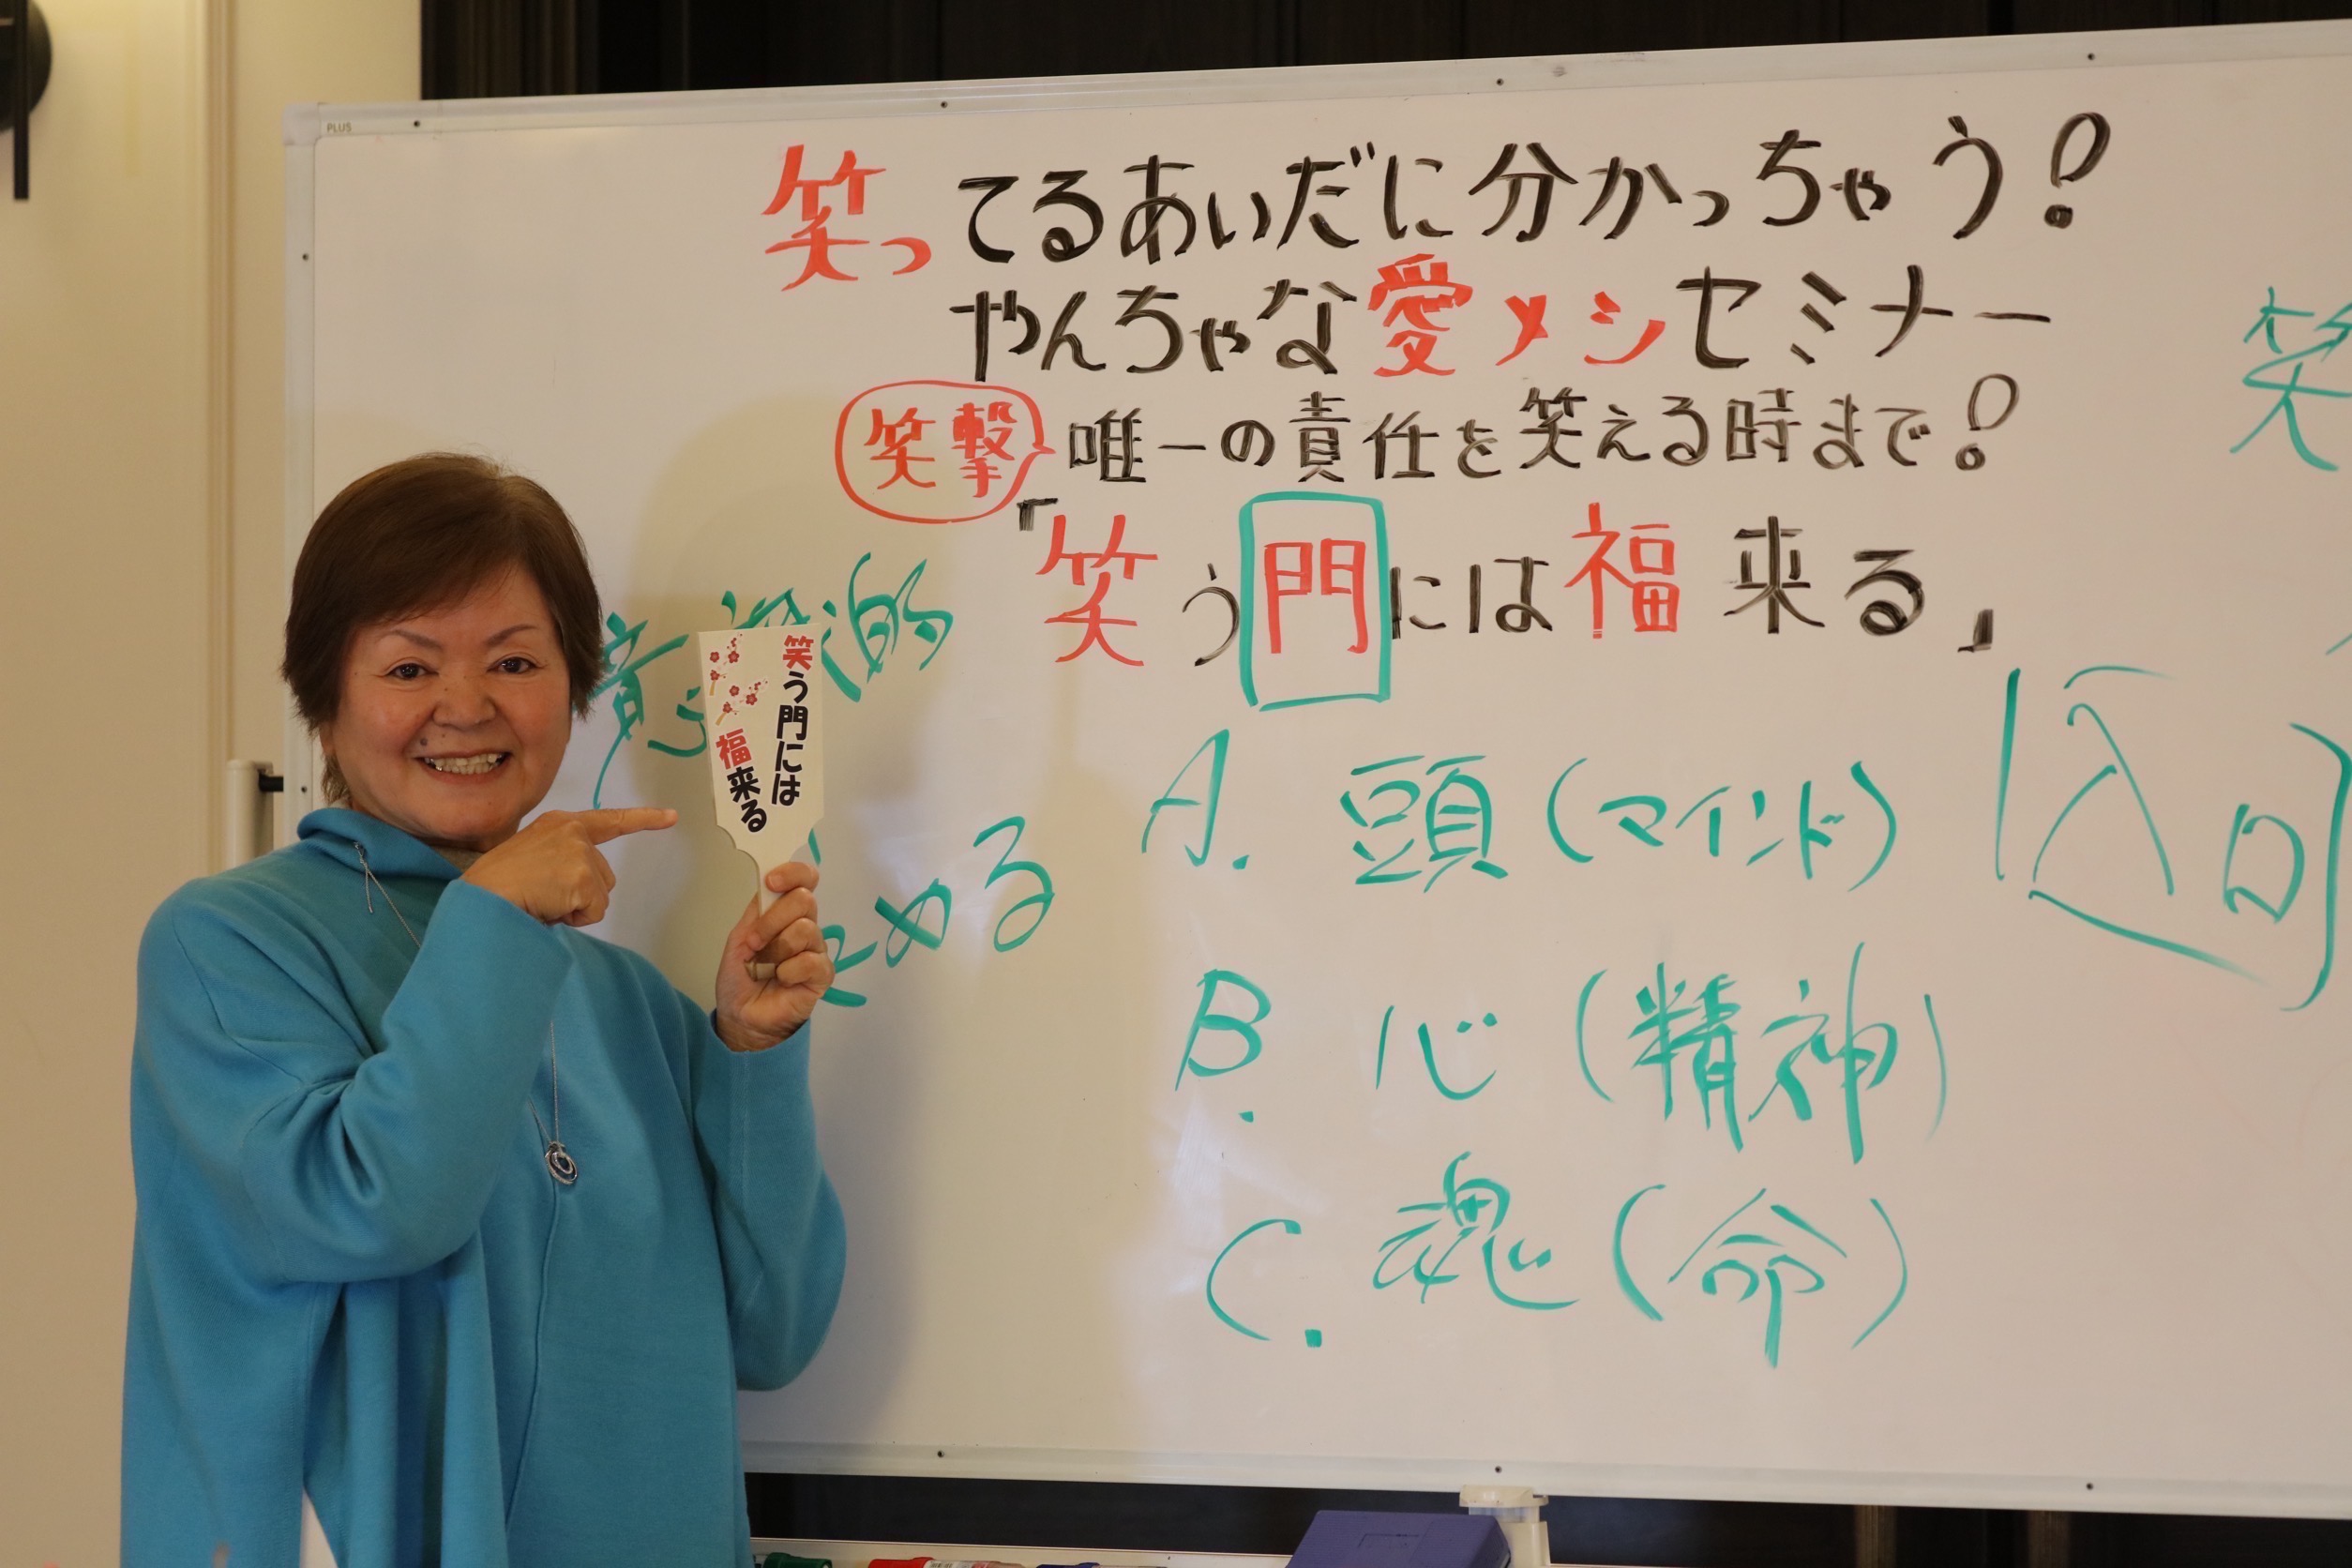 PLUS
笑ってるあいだに分かっちゃう!
やんちゃな愛メシセミナー
笑撃 唯一の責任を笑える時まで!
「笑う門には福来る」
笑
意 的
める
笑う門には
福来る
A. 頭(マインド)
入口
B. 心(精神)
C. 魂(命)